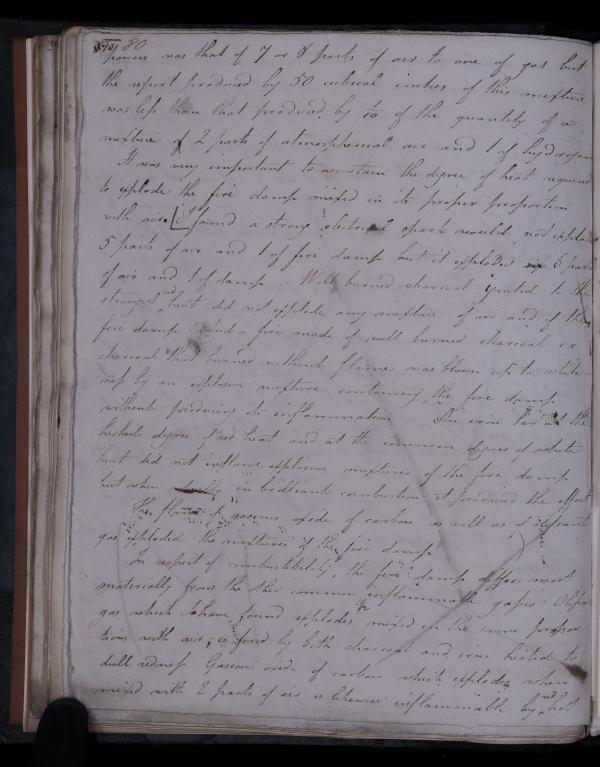 80
powers was that of 7 or 8 parts of air to one of gas but
the report produced by 50 cubical inches of this mixture
was less than that produced by 1/10 of the quantity of a
mixture of 2 parts of atmospherical air and 1 of hydrogen
It was very important to ascertain the degree of heat required
to explode the fire damp mixed in its proper proportion
with air. [I found a strong electrical spark would not explode
5 parts of air and 1 of fire damp but it exploded 6 parts
of air and 1 of damp. Well burned charcoal ignited to the
strongest red heat did not explode any mixture of air and of the
fire damp and a fire made of well burned charcoal i.e
charcoal that burned without flame was blown up to white-
ness by an explosive mixture containing the fire damp
without producing its inflammation - An iron bar at the
highest degree of red heat and at the common degree of white
heat did not inflame explosive mixtures of the fire damp
but when in brilliant combustion it produced the effect
The flame of gaseous oxide of carbon as well as of olefiant
gas exploded the mixtures of the fire damp.
In respect of combustibility, the fire damp differs most
materially from the other common inflammable gases. Olefiant
gas which I have found explodes mixed in the same propor-
tions with air, is fired by both charcoal and iron heated to
dull redness. Gaseous oxide of carbon which explodes when
mixed with 2 parts of air is likewise inflammable by red hot